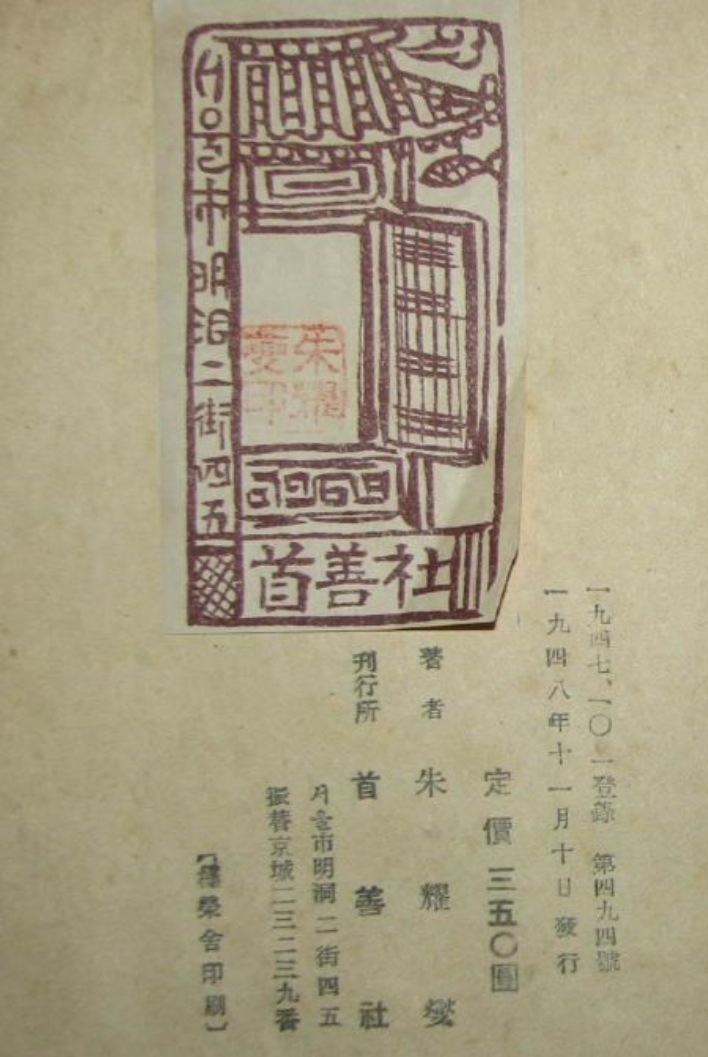 서울市明洞二街四五
朱耀燮印
首善社
一九四七、一〇一登錄 第四九四號
一九四八年十一月十日 發行
定價 三五〇圓
著者 朱耀燮
刊行所 首善社
서울市明洞二街四五
振替京城二三二三九番
榮舍印刷】